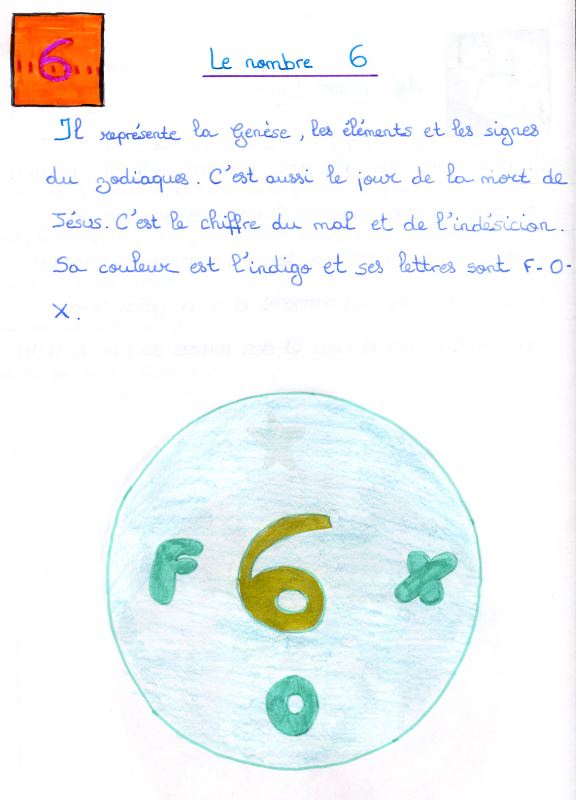 6
Le nombre 6
Il représente la Genèse, les éléments et les signes
du zodiaques. C'est aussi le jour de la mort de
Jésus. C'est le chiffre du mal et de l'indésicion.
Sa couleur est l'indigo et ses lettres sont F-O-
X.
F 6 X
O